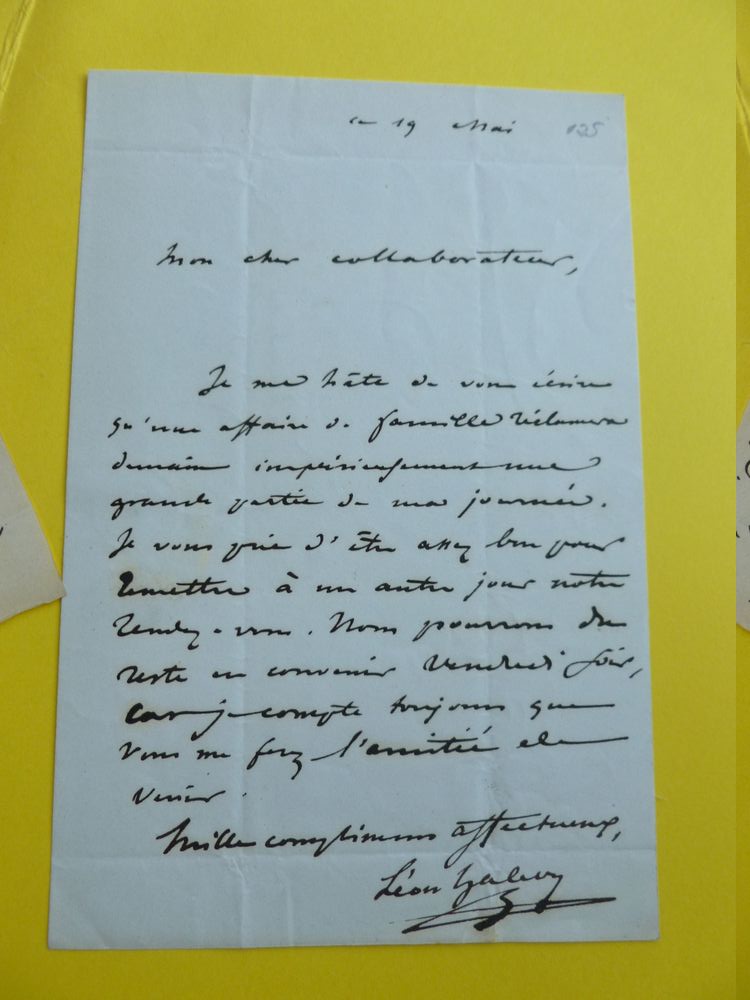 ce 19 Mai 125
Mon cher collaborateur,
Je me hâte de vous écrire
qu'une affaire de famille réclamera
demain impérieusement une
grande partie de ma journée.
Je vous prie d'être assez bon pour
remettre à un autre jour notre
rendez-vous. Nous pourrons du
reste en convenir vendredi soir,
car je compte toujours que
vous me ferez l'amitié de
venir.
Mille complimens affectueux,
Léon Halevy